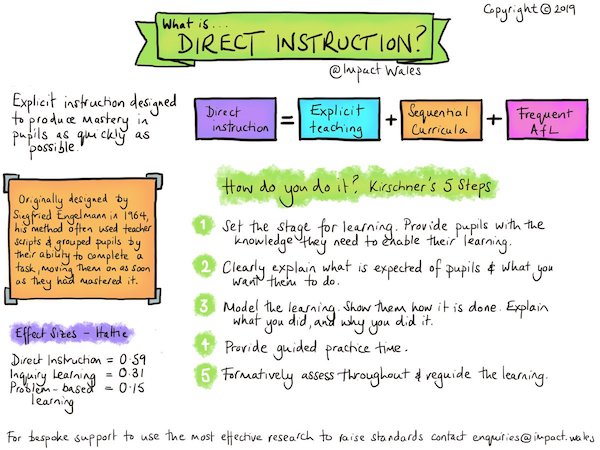 Copyright © 2019
What is...
DIRECT INSTRUCTION?
@Impact Wales
Explicit instruction designed
to produce mastery in
pupils as quickly as
possible.
Direct
instruction
=
Explicit
teaching
+
Sequential
Curricula
+
Frequent
AfL
Originally designed by
Siegfried Engelmann in 1964,
his method often used teacher
scripts & grouped pupils by
their ability to complete a
task, moving them on as soon
as they had mastered it.
Effect Sizes - Hattie
Direct Instruction = 0.59
Inquiry Learning = 0.31
Problem-based = 0.15
learning
How do you do it? Kirschner's 5 Steps
1 Set the stage for learning. Provide pupils with the
knowledge they need to enable their learning.
2 Clearly explain what is expected of pupils & what you
want them to do.
3 Model the learning. Show them how it is done. Explain
what you did, and why you did it.
4 Provide guided practice time.
5 Formatively assess throughout & reguide the learning.
For bespoke support to use the most effective research to raise standards contact enquiries@impact.wales